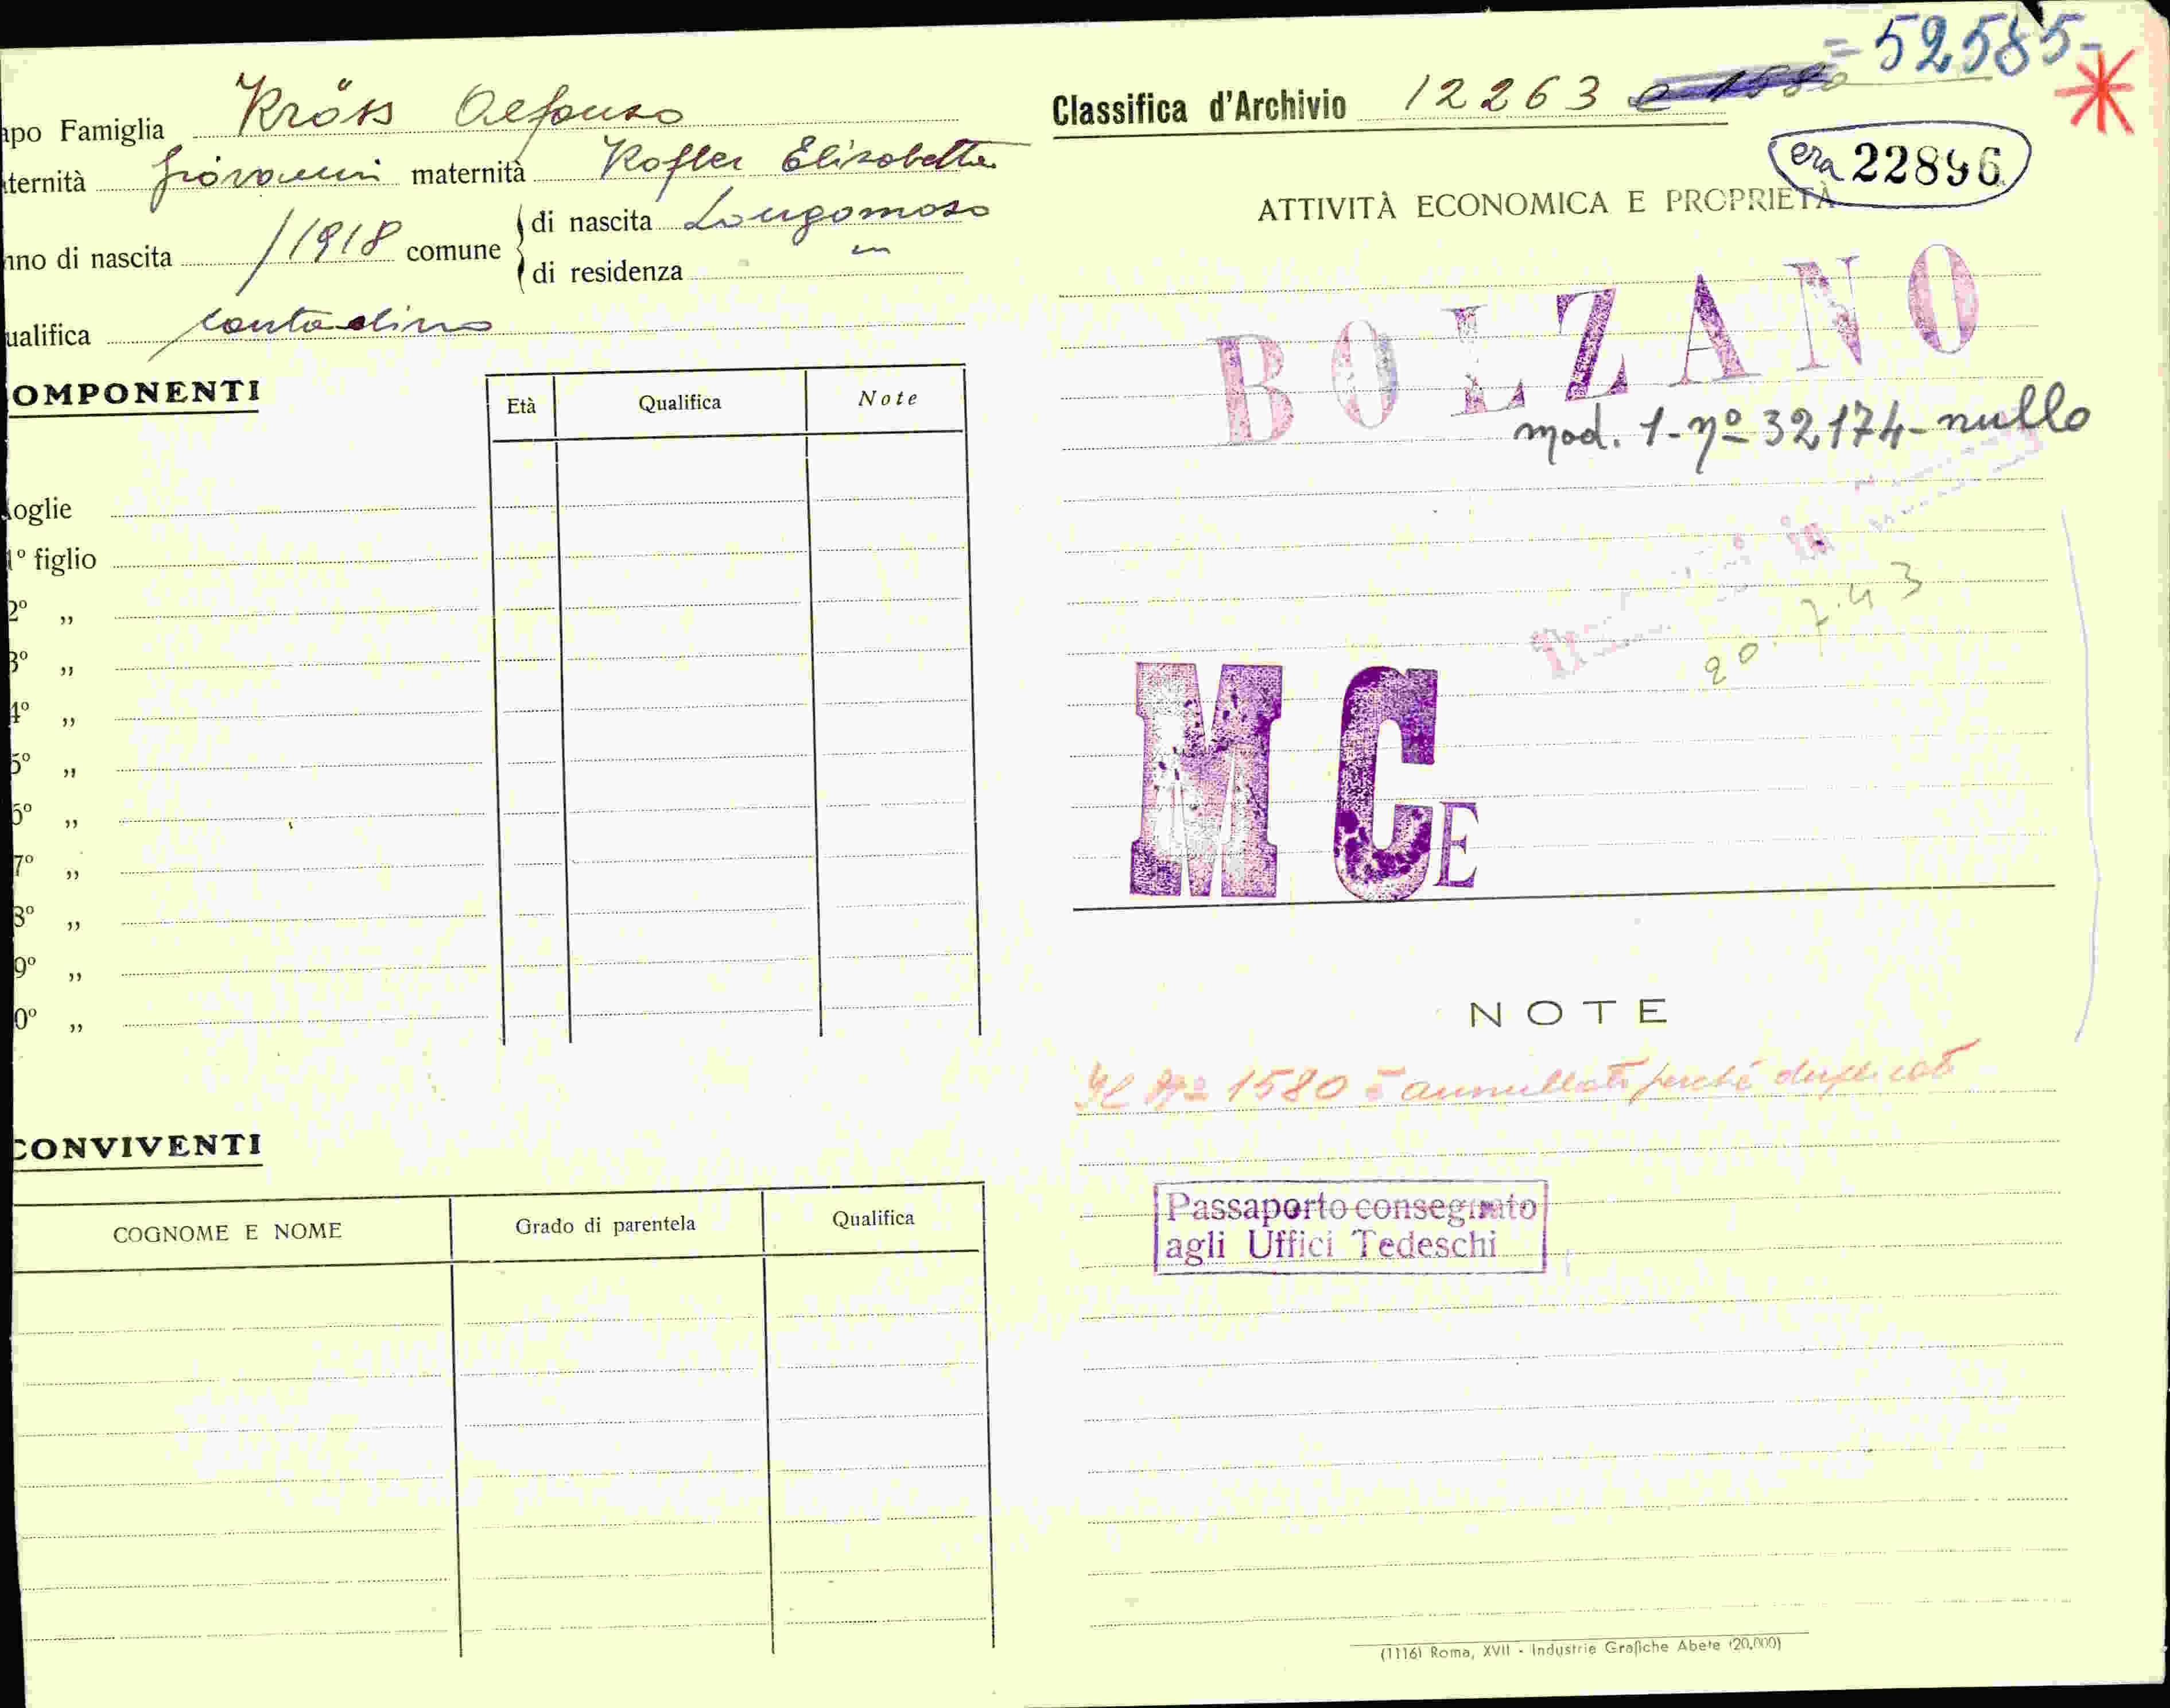 apo Famiglia Kröss Alfonso
ternità Giovanni maternità Kofler Elisabetta
nno di nascita 1918 comune di nascita Longomoso
di residenza "
ualifica contadino
OMPONENTI
Età Qualifica Note
oglie
1° figlio
2° „
3° „
4° „
5° „
6° „
7° „
8° „
9° „
0° „
CONVIVENTI
COGNOME E NOME Grado di parentela Qualifica
= 52585-
Classifica d'Archivio 12263 e 1580
era 22896
ATTIVITÀ ECONOMICA E PROPRIETÀ
BOLZANO
mod. 1-nº 32174-nullo
20.7.43
M C E
NOTE
Il Nº 1580 è annullato perché duplicato
Passaporto consegnato
agli Uffici Tedeschi
(1116) Roma, XVII - Industrie Grafiche Abete (20,000)